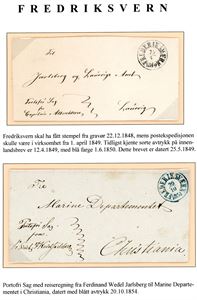 FREDRIKSVERN
Jarlsberg og Laurvigs Amt
Laurvig
Fredriksvern skal ha fått stempel fra gravør 22.12.1848, mens postekspedisjonen
skulle være i virksomhet fra 1. april 1849. Tidligst kjente sorte avtrykk på innen-
landsbrev er 12.4.1849, med blå farge 1.6.1850. Dette brevet er datert 25.5.1849.
Fra
Marine Departementet
Christiania
Portofri Sag med reiseregning fra Ferdinand Wedel Jarlsberg til Marine Departe-
mentet i Christiania, datert med blått avtrykk 20.10.1854.